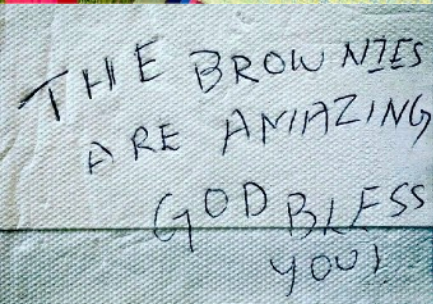 THE BROWNIES
ARE AMAZING
GOD BLESS
YOU!